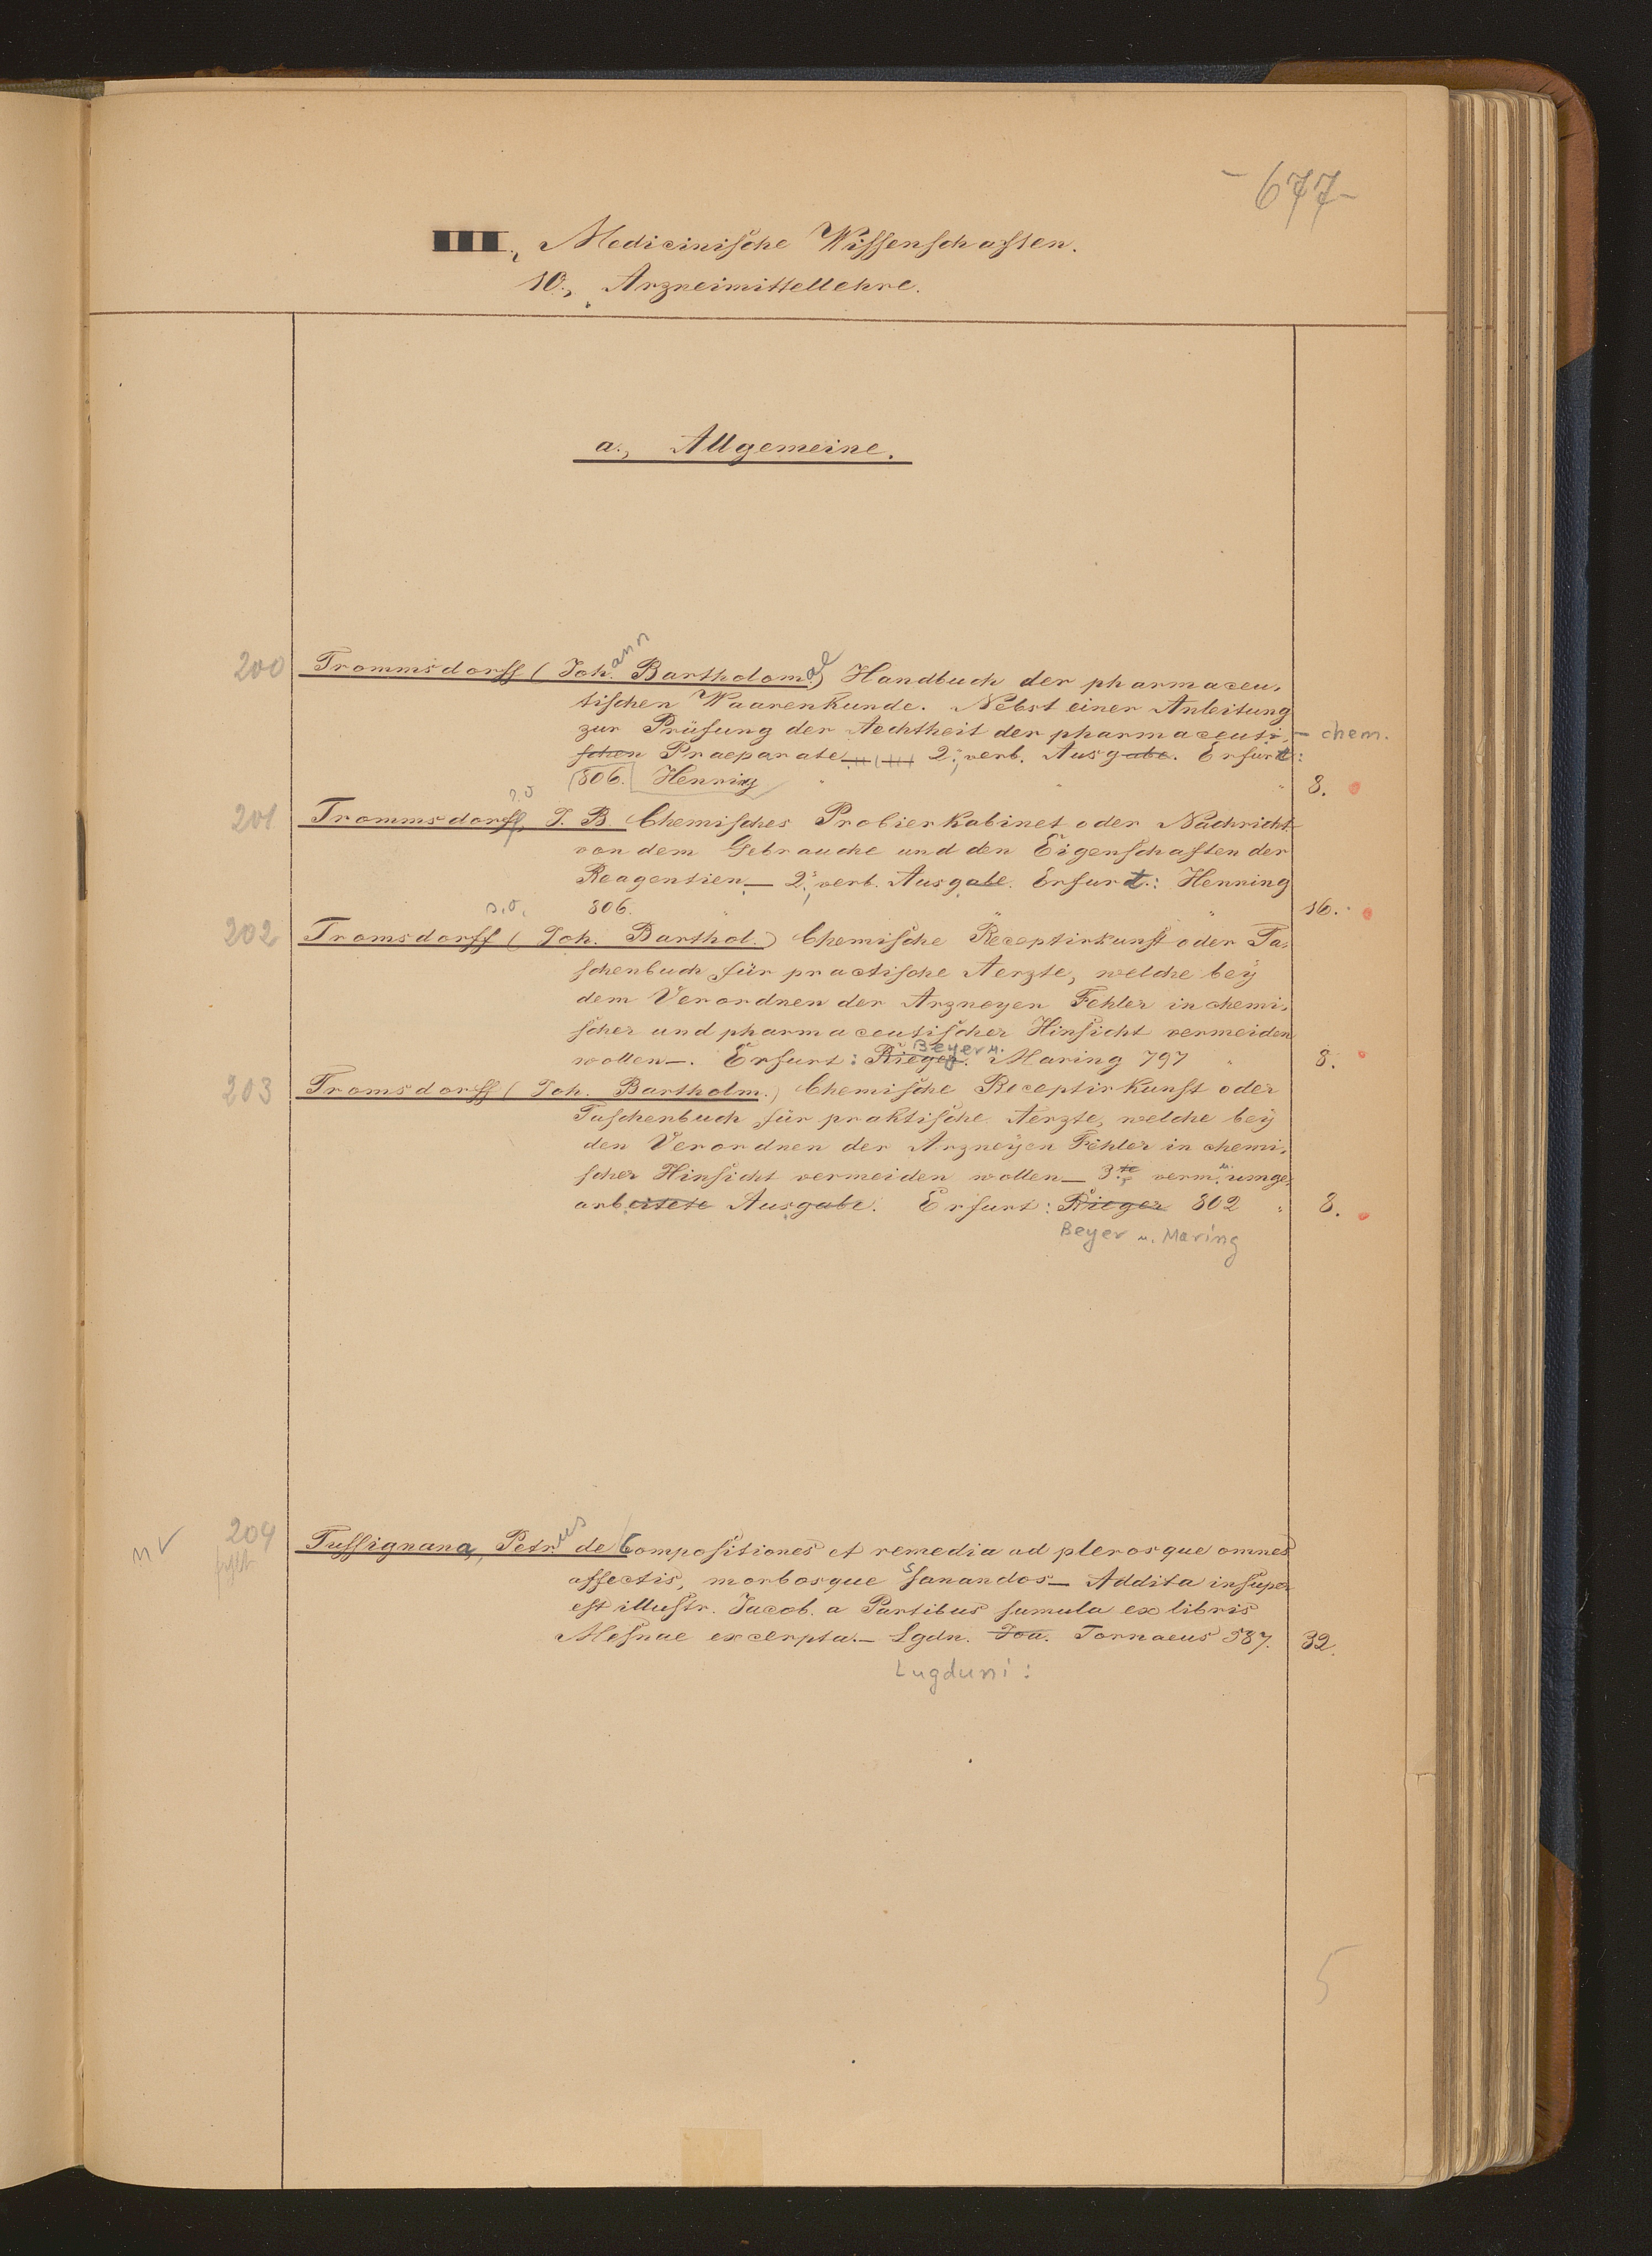 - 677 -
III., Medicinische Wissenschaften.
10., Arzneimittellehre.
a., Allgemeine.
200 Trommsdorff (Johann Bartholomae) Handbuch der pharmaceu-
tischen Waarenkunde. Nebst einer Anleitung
zur Prüfung der Aechtheit der pharmaceuti- - chem.
schen Praeparate 2; verb. Ausgabe. Erfurt:
806. Henning 8.
201 Trommsdorff, J. B Chemisches Probierkabinet oder Nachricht
von dem Gebrauche und den Eigenschaften der
Reagentien_ 2; verb. Ausgabe. Erfurt.: Henning
806. 16.
202 Tromsdorff (Joh. Barthol.) Chemische Receptirkunst oder Ta-
schenbuch für practische Aerzte, welche bey
dem Verordnen der Arzneyen Fehler in chemi-
scher und pharmaceutischer Hinsicht vermeiden
Beyer u.
wollen_. Erfurt: Rieger. Maring 797 8.
203 Tromsdorff (Joh. Bartholm.) Chemische Receptirkunst oder
Taschenbuch für praktische Aerzte, welche bey
den Verordnen der Arzneyen Fehler in chemi-
scher Hinsicht vermeiden wollen_ 3te verm. u. umge-
arbeitete Ausgabe. Erfurt: Rieger 802 8.
Beyer u. Maring
n 204 Tussignana, Petrus de Compositiones et remedia ad plerosque omnes
affectis, morbosque sanandos_ Addita insuper
est illustr. Jacob. a Partibus sumula ex libris
Mesuae excerpta._ Lgdn. Joa. Tornaeus 587. 32.
Lugduni:
5